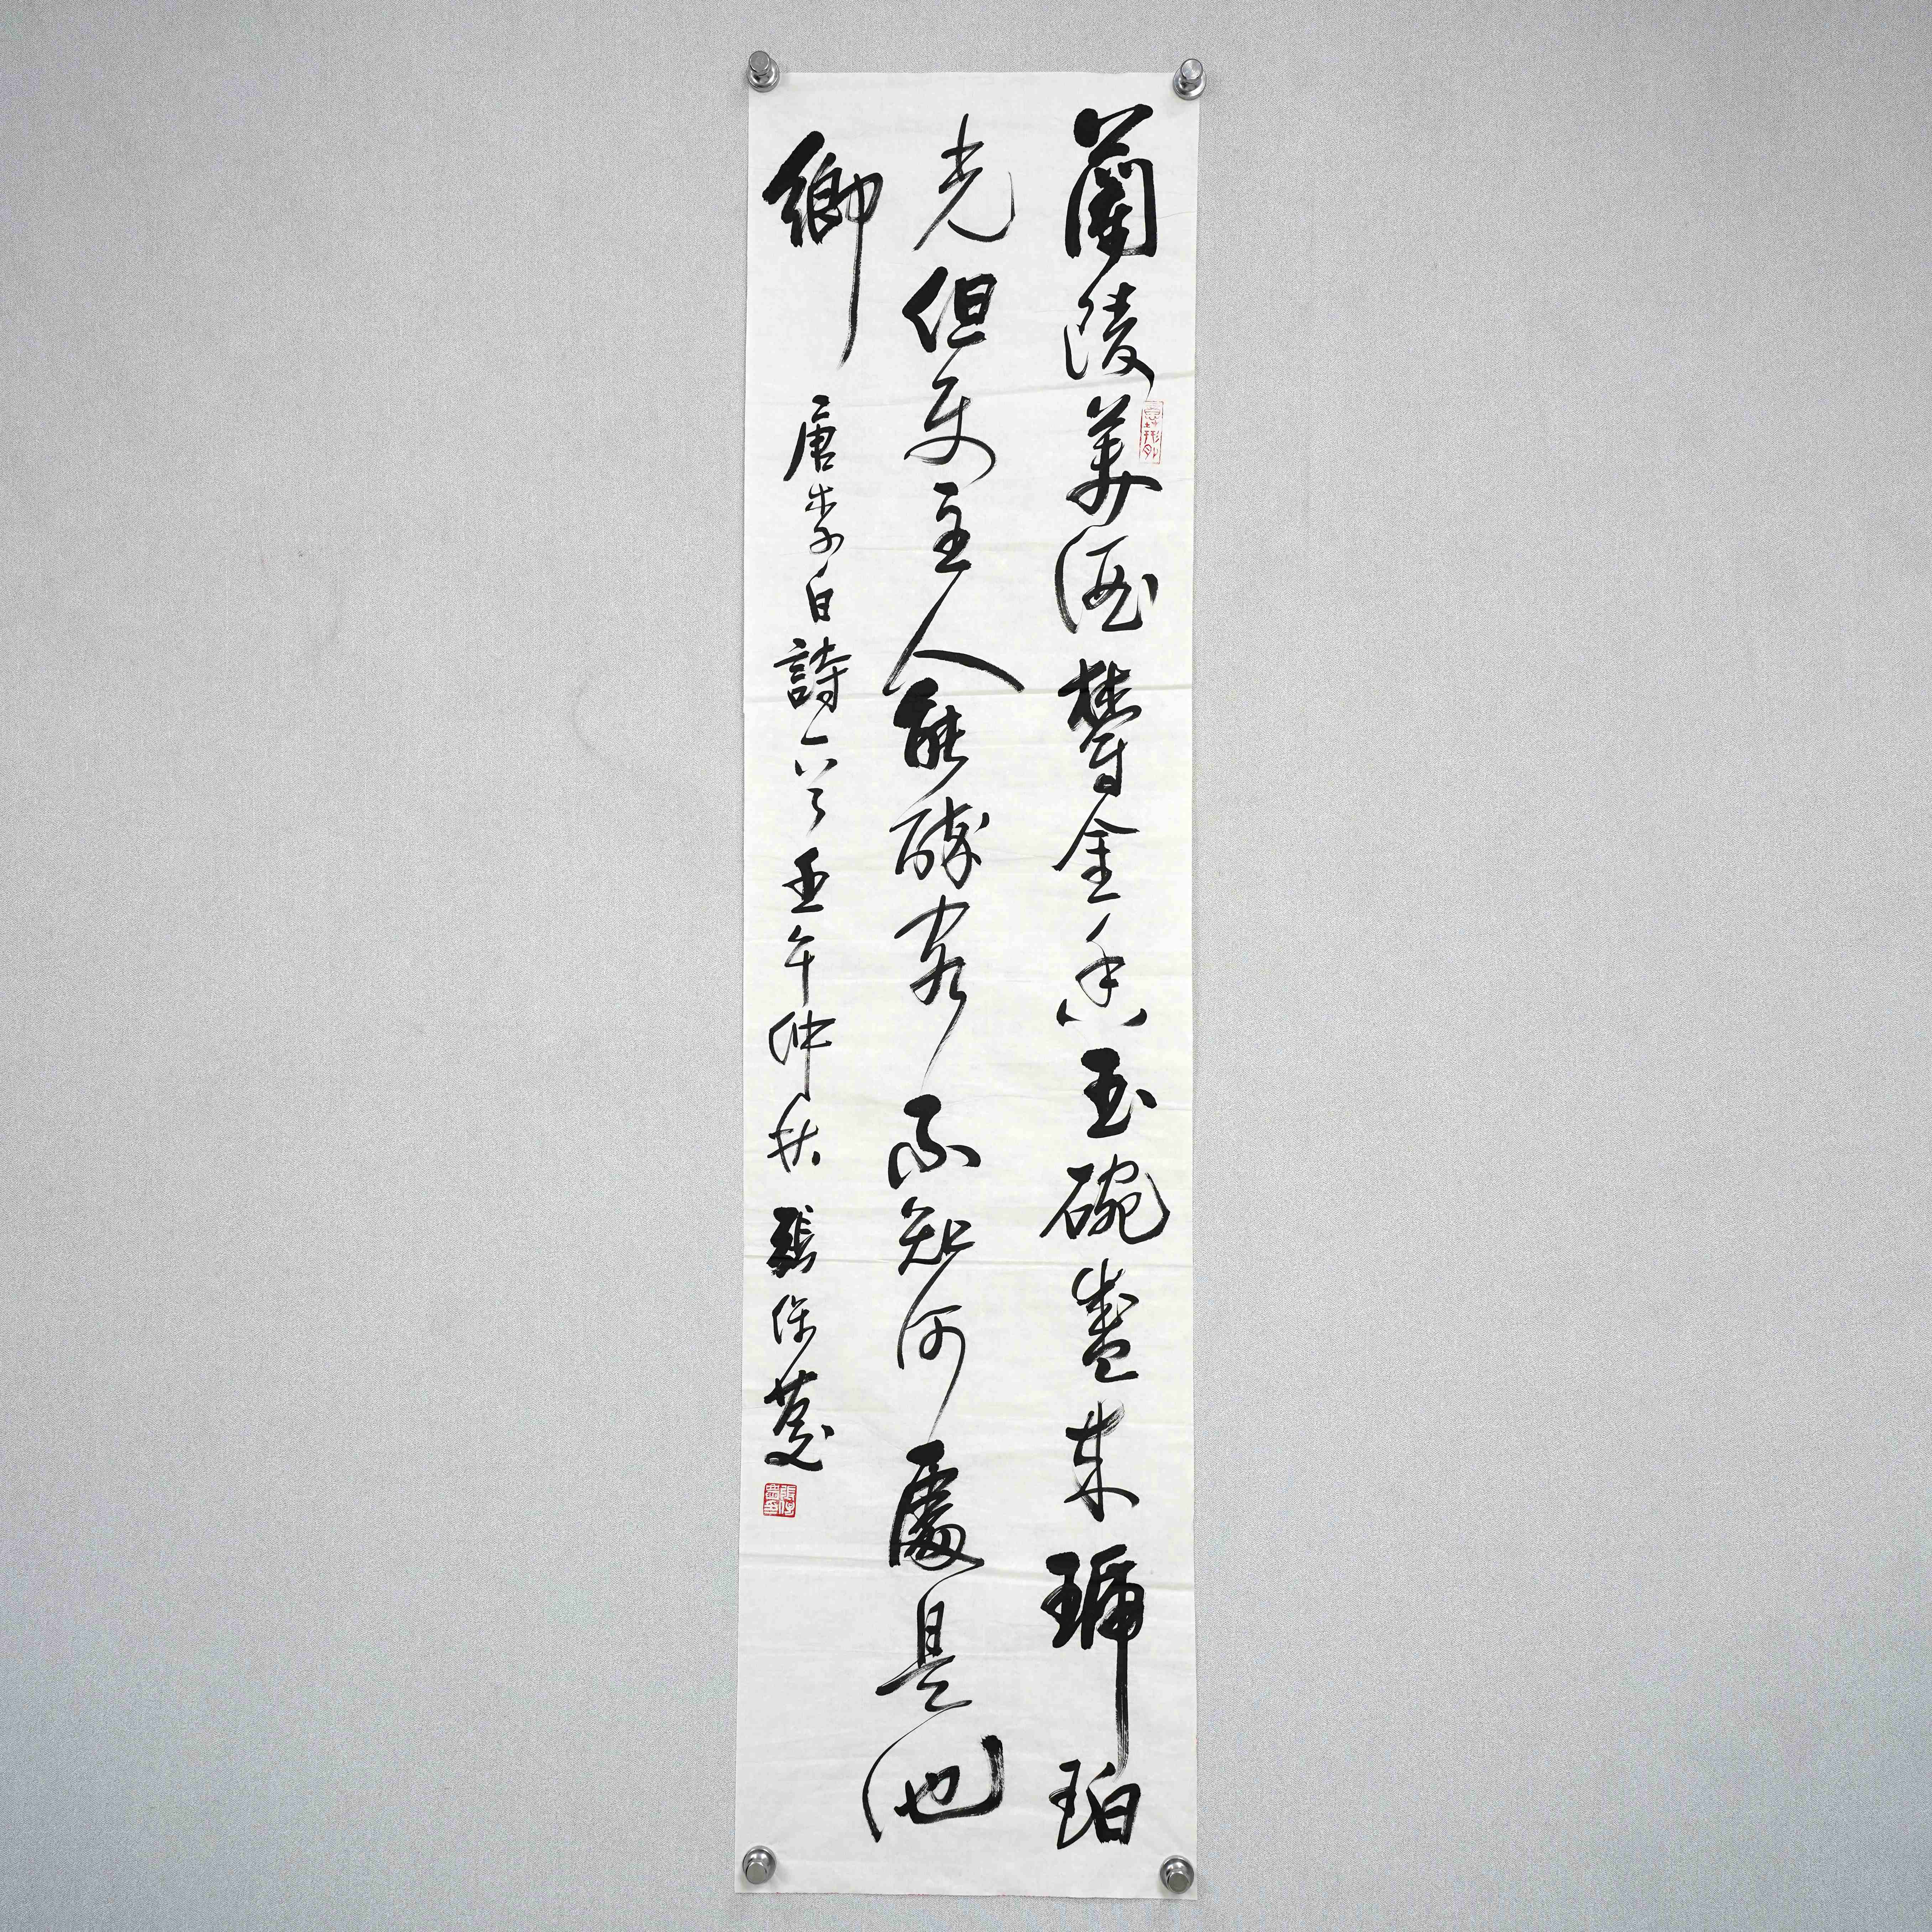 蘭陵美酒鬱金香玉碗盛來琥珀
光但使主人能醉客不知何處是他
鄉 唐李白詩一首 壬午仲秋 張保